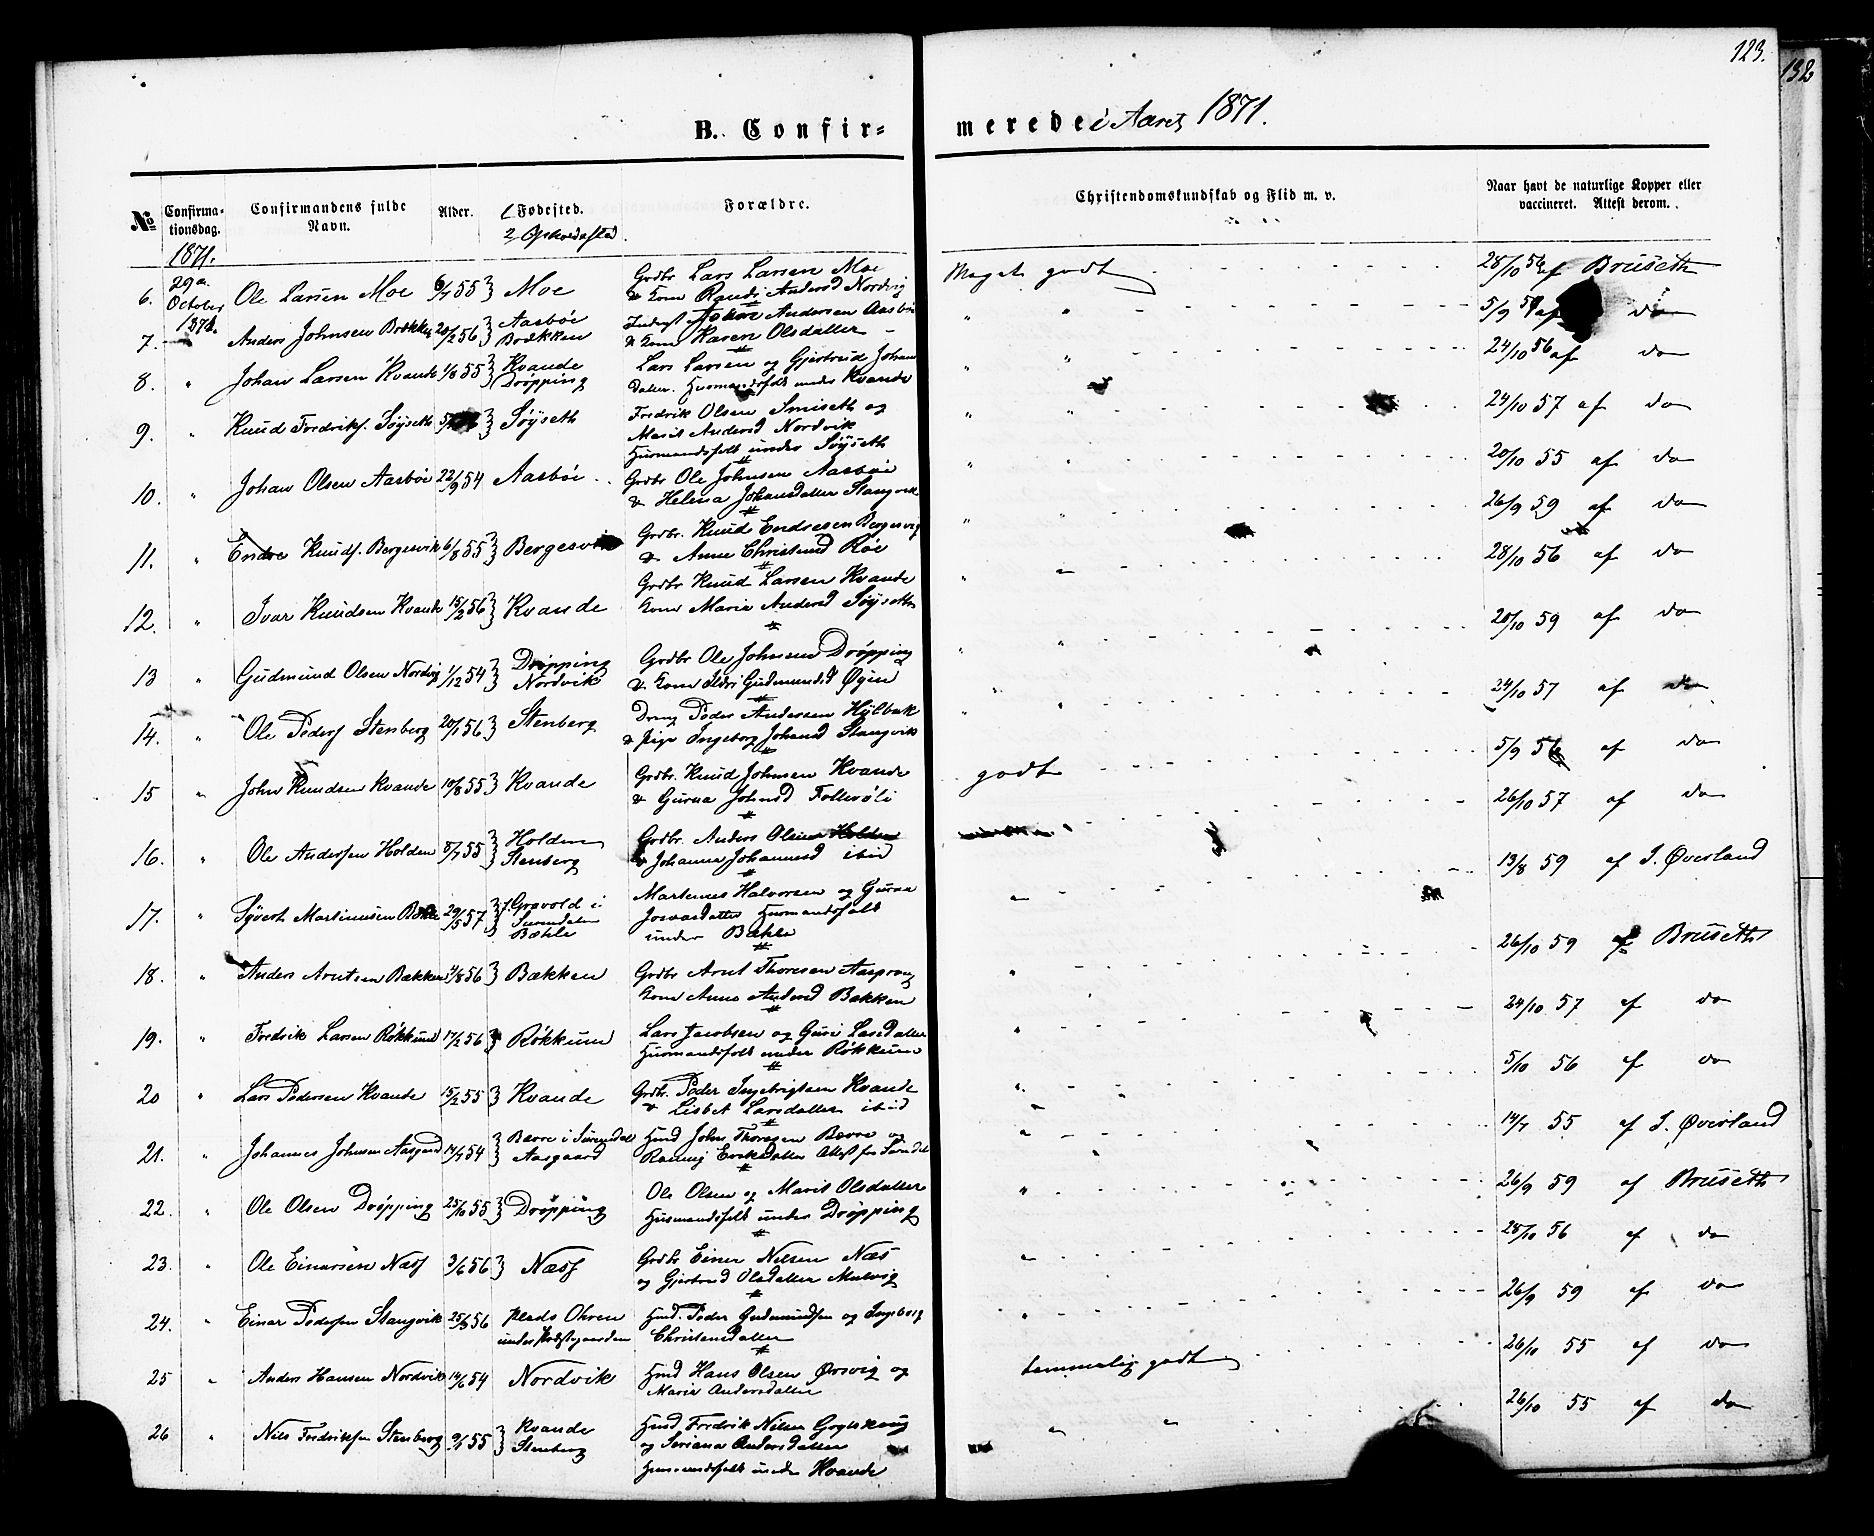 123.
132
B. Confirmerede i Aaret 1871.
No
Confirmationsdag.
Confirmandens fulde Navn.
Alder.
1 Fødested.
2, Opholdssted.
Forældre.
Christendomskundskab og Flid m. v.
Naar havt de naturlige Kopper eller vaccineret. Attest derom.
1871.
6. 29de October 1871. Ole Larsen Moe 6/7 55 Moe
Grdbr Lars Larsen Moe
& Kone Randi Andersd Nordvig
Meget godt 28/10 56 af Bruseth
7. Anders Johnsen Brækken 20/2 56 Aasbøe Brækken
Andersen Aasbøe
& Kone Karen Olsdatter
" " 5/9 af do
8. " Johan Larsen Kvande 1/8 55 Kvande Drøpping
Lars Larsen og Gjertrud Johan
datter. Husmandsfolk under Kvande
" " 24/10 56 af do
9. " Knud Fredriks. Søyseth Søyseth
Fredrik Olsen Smiseth og
Marit Andersd Nordvik
Husmandsfolk under Søyseth
" " 24/10 57 af do
10. " Johan Olsen Aasbøe 22/9 54 Aasbøe
Grdbr Ole Johnsen Aasbøe
& Helena Johansdatter Stangvik
" " 20/10 55 af do
11. " Endre Knuds. Bergesvik 6/8 55 Bergesvik
Grdbr. Knud Endresen Bergesvig
& Anne Christensd Røe
" " 26/9 59 af do
12. " Ivar Knudsen Kvande 15/2 56 Kvande
Grdbr Knud Larsen Kvande
Kone Marie Andersd Søyseth
" " 28/10 56 af do
13 " Gudmund Olsen Nordvig 1/12 54 Drøpping Nordvik
Grdbr Ole Johnsen Drøpping
& Kone Sldri Gudmundsd Øyen
" " 20/10 59 af do
14. " Ole Peders Stenberg 20/1 56 Stenberg
Dreng Peder Andersen Hylbak
& Pige Ingeborg Johansd Stangvik
" " 24/10 57 af do
15 " John Knudsen Kvande 10/8 55 Kvande
Grdbr. Knud Johnsen Kvande
& Gurua Johnsd
godt 5/9 56 af do
16. " Ole Andersen Holden 5/7 55 Holden Stenberg
Grdbr. Anders Olsen Holden
& Johanna Johannesd ibid
26/10 57 af do
17. " Syvert Martinusen Bækle 29/5 57 Grøvold i Surendalen Bækle
Martinus Halvorsen og Gurua
Iversdatter Husmandsfolk
under Bækle
" 13/8 59 af I. Øverland
18. " Anders Arntsen Bækken /8 56 Bækken
Grdbr Arnt Thoresen Aasprong
Kone Anne Andersd Bakken
" 26/10 59 af Bruseth
19. " Fredrik Larsen Røkkum 17/2 56 Røkkum
Lars Jacobsen og Guri Larsdatter
Husmandsfolk under Røkkum
" 24/10 57 af do
20 " Lars Pedersen Kvande 15/2 55 Kvande
Grdbr. Peder Ingebrigtsen Kvande
& Lisbet Larsdatter ibid
" 5/10 56 af do
21. " Johannes Johnsen Aasgaard 14/7 54 Bævre i Surendal Aasgaard
Hmd John Thoresen Bævre og
Rannig Eriksdatter Attest fra Surndal
" 14/7 55 af I. Øverland
22. " Ole Olsen Drøpping 25/10 55 Drøpping
Ole Olsen og Marit Olsdatter
Husmandsfolk under Drøpping
" 26/9 59 af Bruseth
23. " Ole Einarsen Næss 3/6 56 Næss
Grdbr Einer Nilsen Næs
og Gjertrud Olsdatter Mulvig
" 28/10 56 af do
24. " Einar Pedersen Stangvik 25/5 56 Plads Ohren under Præstegaarden
Hmd. Peder Gudmundsen og Ingeborg
Christensdatter
" 26/9 59 af do
25 " Anders Hansen Nordvik 14/6 54 Nordvik
Hmd Hans Olsen Ørsvig og
Marie Andersdatter
temmelig godt 26/10 55 af do
26 " Nils Fredriksen Stenberg 9/1 55 Kvande Stenberg
Hmd. Fredrik Nilsen
og Seriana Andersdatter
Husmandsfolk under Kvande
" " 26/10 55 af do